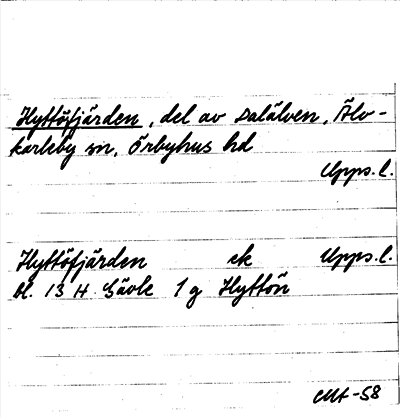 Hyttöfjärden, del av Dalälven, Älv-
karleby sn, Örbyhus hd
Upps. l.
Hyttöfjärden ek Upps. l.
Bl. 13 H Gävle 1 g Hyttön
-58